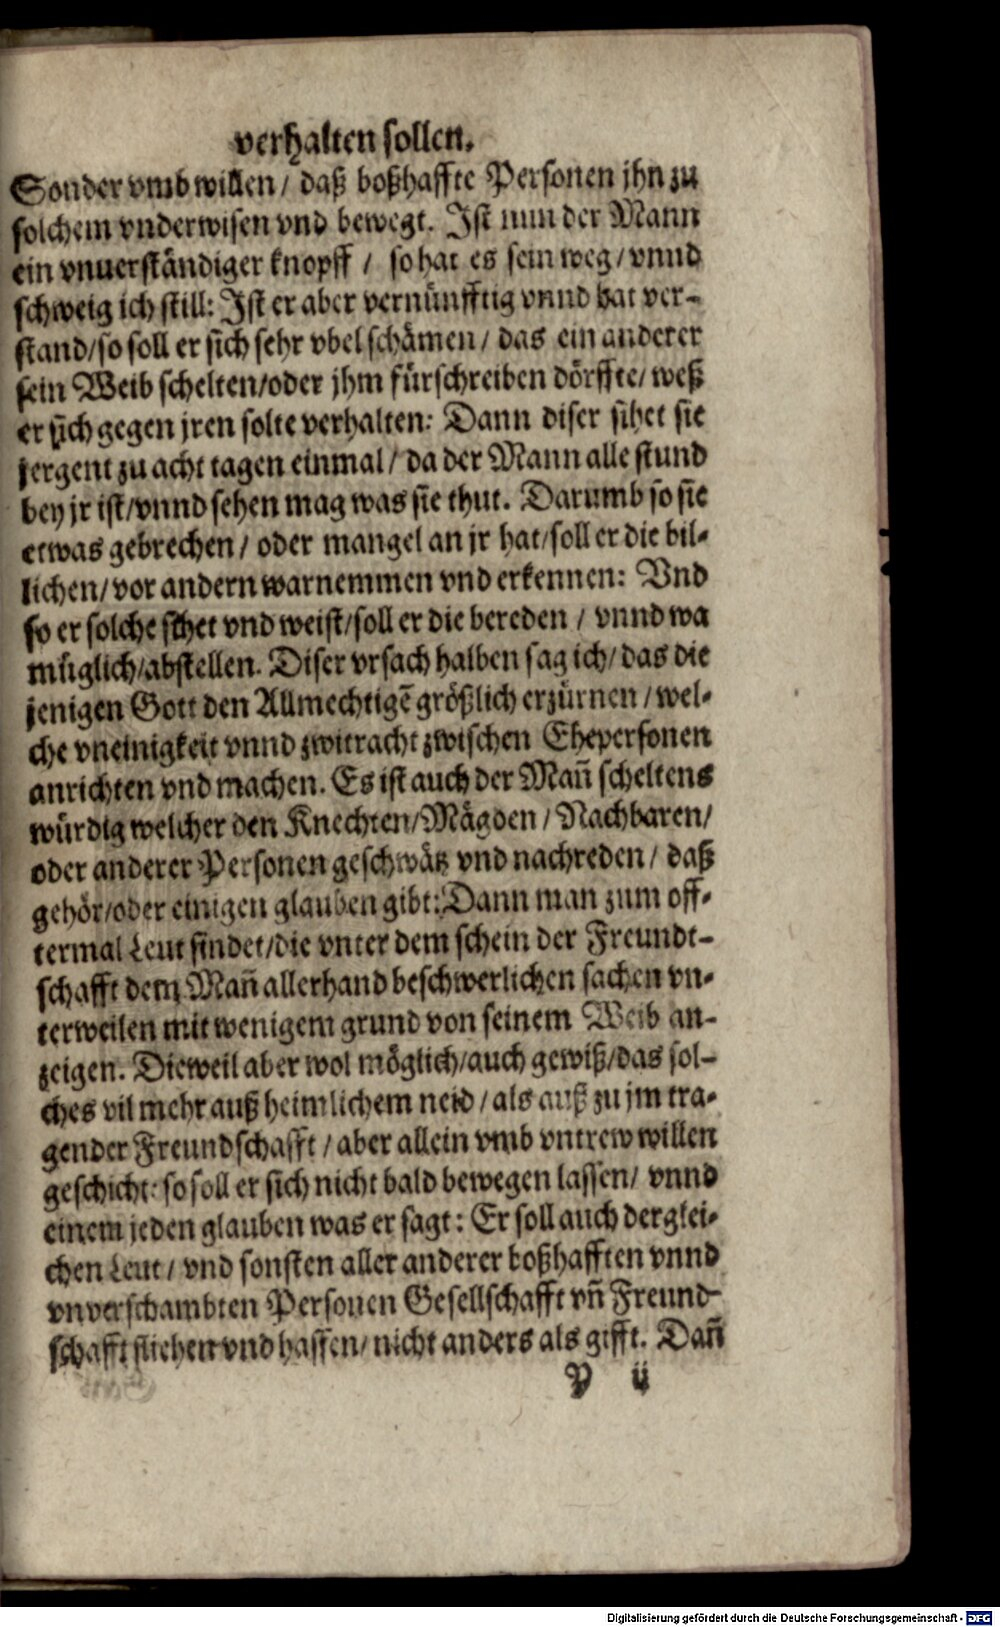 verhalten sollen.
Sonder vmb willen / daß boßhaffte Personen jhn zu
solchem vnderwisen vnd bewegt. Ist nun der Mann
ein vnuerständiger knopff / so hat es sein weg / vnnd
schweig ich still: Ist er aber vernünfftig vnnd hat ver-
stand/so soll er sich sehr vbel schämen / das ein anderer
sein Weib schelten/oder jhm fürschreiben dörffte/ weß
er sich gegen jren solte verhalten: Dann diser sihet sie
jergent zu acht tagen einmal / da der Mann alle stund
bey jr ist/vnnd sehen mag was sie thut. Darumb so sie
etwas gebrechen / oder mangel an jr hat/soll er die bil-
lichen/vor andern warnemmen vnd erkennen: Vnd
so er solche sihet vnd weist/soll er die bereden / vnnd wa
müglich/abstellen. Diser vrsach halben sag ich/ das die
jenigen Gott den Allmechtigē größlich erzürnen / wel-
che vneinigkeit vnnd zwitracht zwischen Ehepersonen
anrichten vnd machen. Es ist auch der Mañ scheltens
würdig welcher den Knechten/Mägden / Nachbaren/
oder anderer Personen geschwätz vnd nachreden / daß
gehör/oder einigen glauben gibt: Dann man zum off-
termal Leut findet/die vnter dem schein der Freundt-
schafft dem Mañ allerhand beschwerlichen sachen vn-
terweilen mit wenigem grund von seinem Weib an-
zeigen. Dieweil aber wol möglich/auch gewiß/das sol-
ches vil mehr auß heimlichem neid / als auß zu jm tra-
gender Freundschafft / aber allein vmb vntrew willen
geschicht: so soll er sich nicht bald bewegen lassen/ vnnd
einem jeden glauben was er sagt: Er soll auch derglei-
chen Leut / vnd sonsten aller anderer boßhafften vnnd
vnverschambten Personen Gesellschafft vñ Freund-
schafft fliehen vnd hassen/ nicht anders als gifft. Dañ
P ij
Digitalisierung gefördert durch die Deutsche Forschungsgemeinschaft - DFG